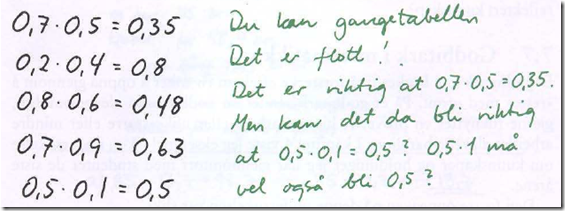 0,7·0,5 = 0,35
0,2·0,4 = 0,8
0,8·0,6 = 0,48
0,7·0,9 = 0,63
0,5·0,1 = 0,5
Du kan gangetabellen
Det er flott!
Det er riktig at 0,7·0,5=0,35.
Men kan det da bli riktig
at 0,5·0,1=0,5? 0,5·1 må
vel også bli 0,5?